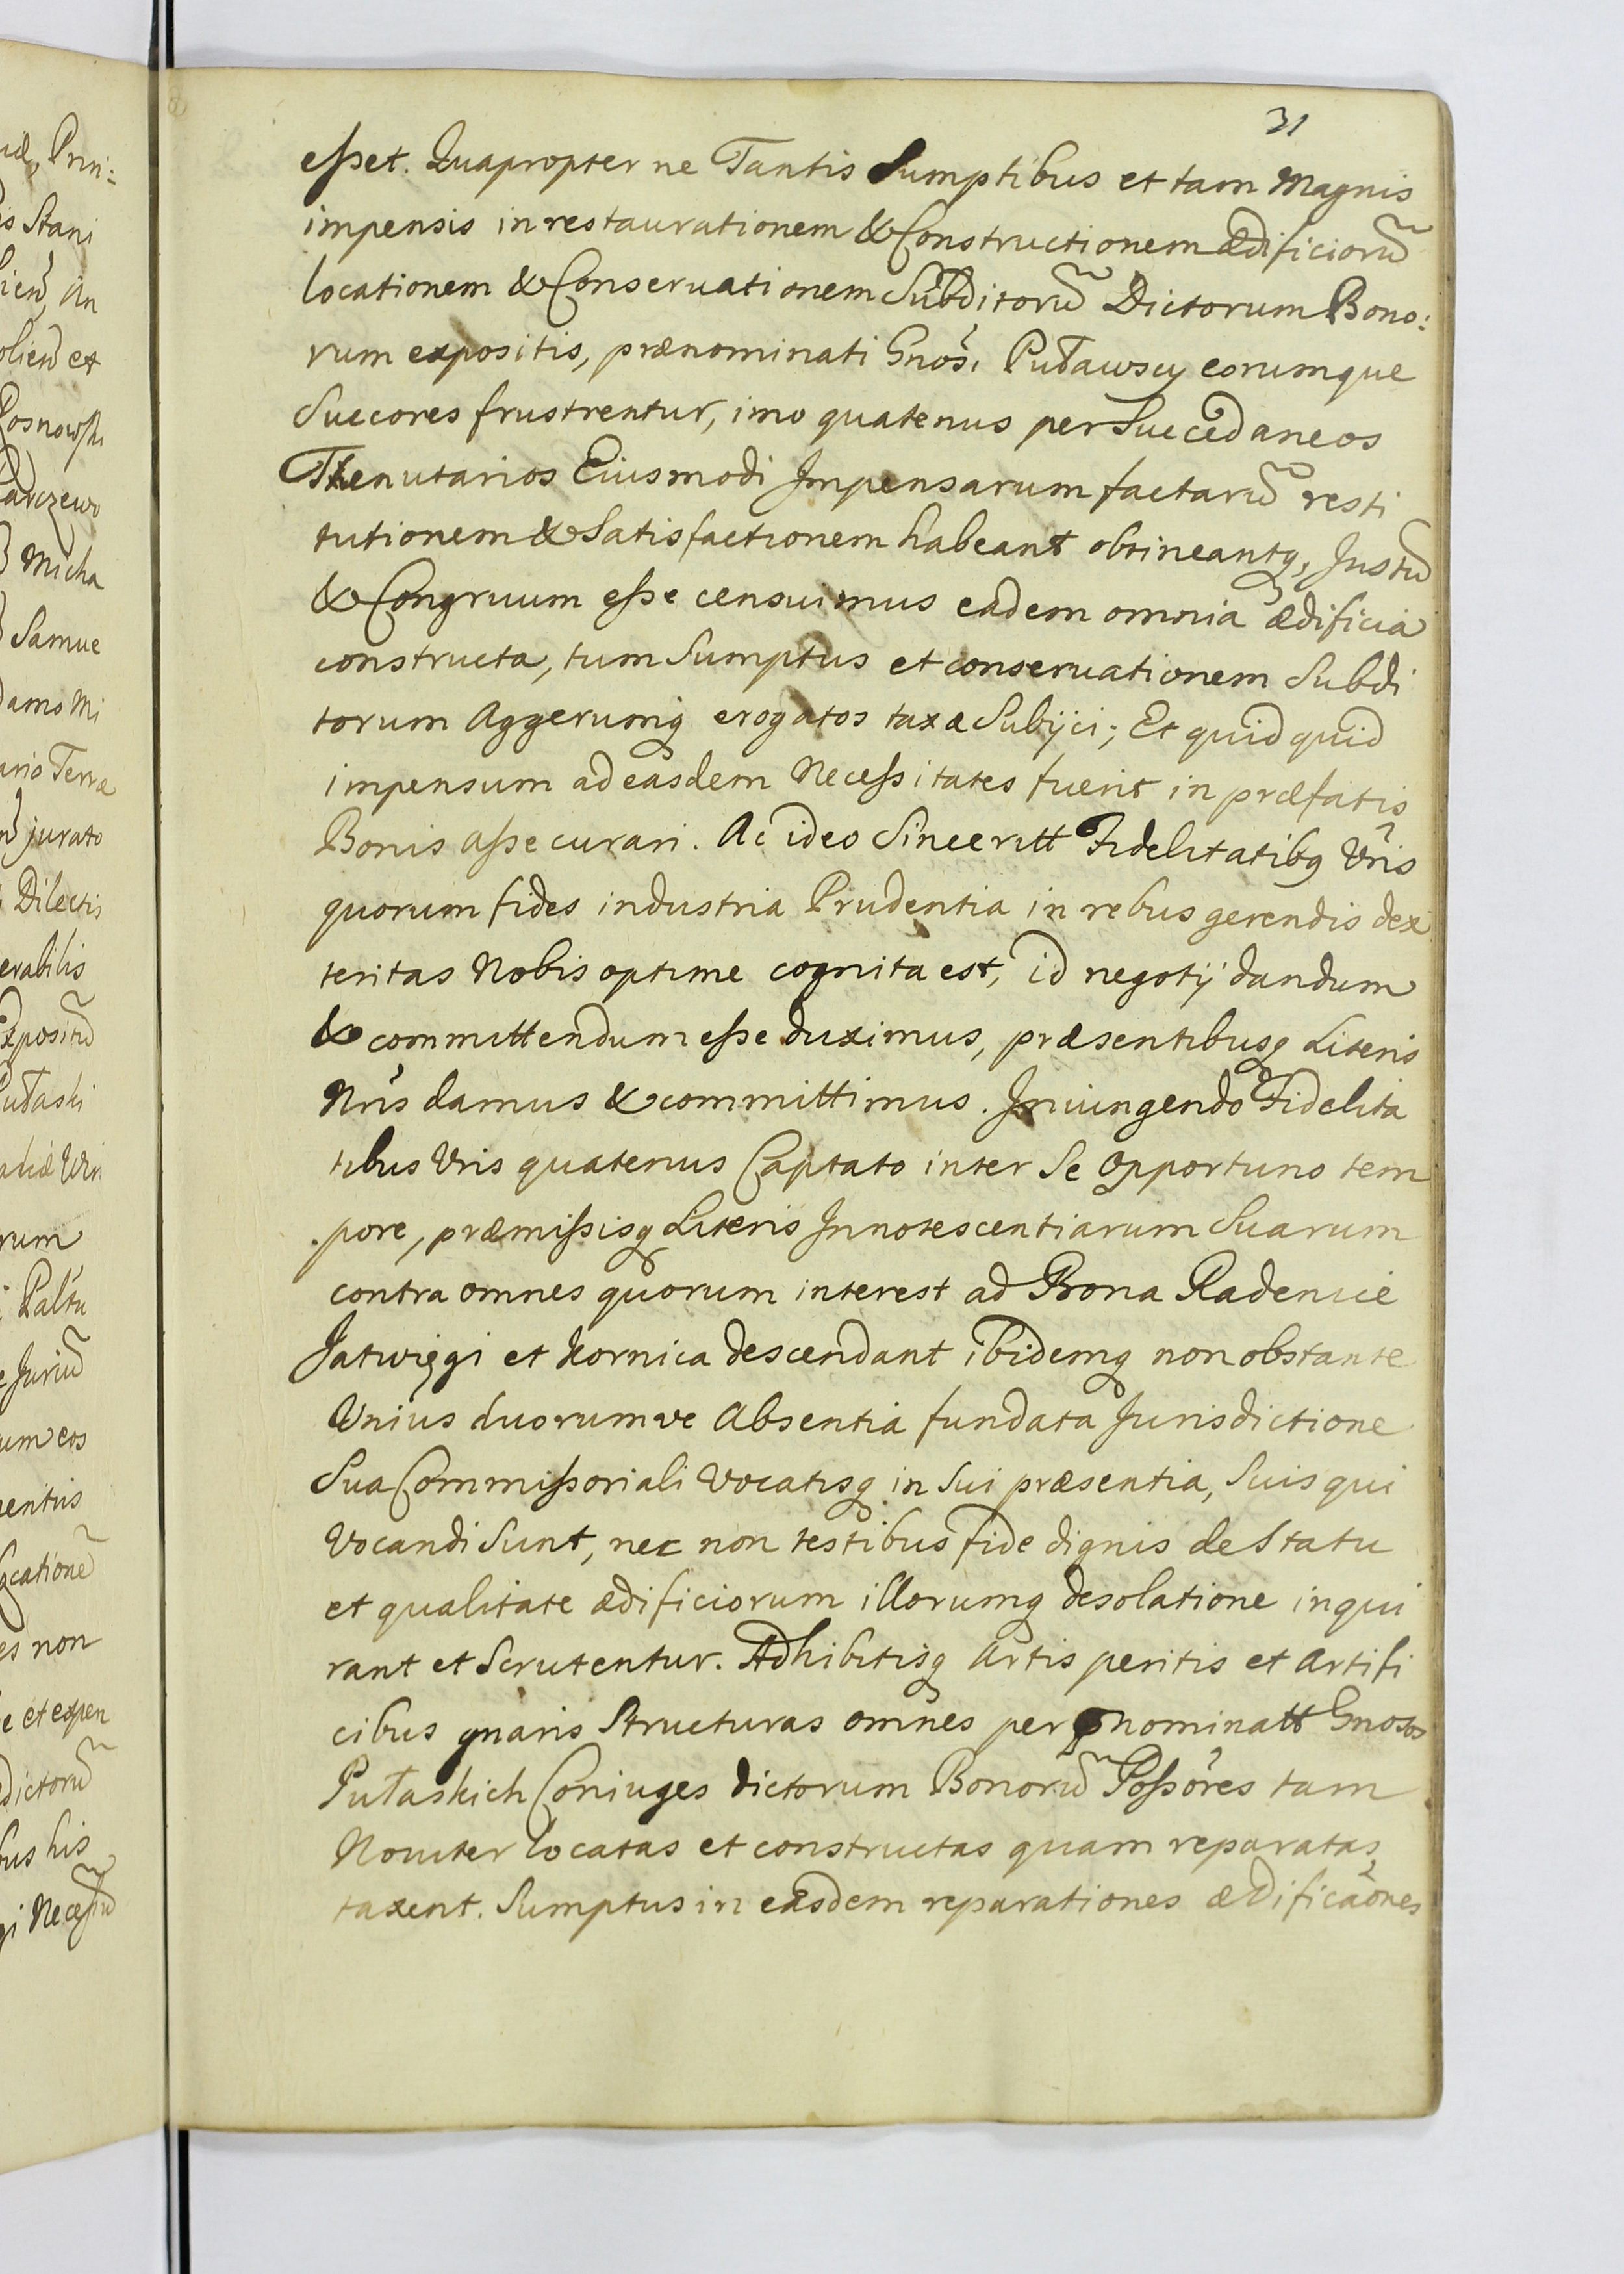 31
esset. Quapropter ne Tantis Sumptibus et tam Magnis
impensis in restaurationem & Constructionem ædificiorũ
locationem & Conseruationem Subditorũ Dictorum Bono:
rum expositis, prænominati Gnosi Puławscy eorumque
Succores frustrentur, imo quatenus per Succedaneos
Thenutarios Eiusmodi Impensarum factarũ resti
tutionem & Satisfactionem habeant obtineantq, Justũ
& Congruum esse censuimus eadem omnia ædificia
constructa, tum Sumptus et conseruationem Subdi
torum Aggerumq erogatos taxæ Subijci; Et quid quid
impensum ad easdem Necessitates fuerit in præfatis
Bonis assecurari. Ac ideo Sinceritt Fidelitatibq Vris
quorum fides industria Prudentia in rebus gerendis dex
teritas Nobis optime cognita est, id negotij dandum
& committendum esse duximus, præsentibusq Literis
Nris damus & committimus. Iniungendo Fidelita
tibus Vris quatenus Captato inter Se opportuno tem
pore, præmissisq Literis Innotescentiarum Suarum
contra omnes quorum interest ad Bona Radenice
Jatwięgi et Hornica descendant ibidemq non obstante
Vnius duorumve Absentia fundata Jurisdictione
Sua Commissoriali Vocatisq in Sui præsentia, Suis qui
Vocandi Sunt, nec non testibus fide dignis de Statu
et qualitate ædificiorum illorumq desolatione inqui
rant et Scrutentur. Adhibitisq Artis peritis et Artifi
cibus gnaris Structuras omnes per pnominatt Gnosos
Pułaskich Coniuges dictorum Bonorũ Possores tam
Nouiter locatas et constructas quam reparatas
taxent. Sumptus in easdem reparationes ædificaones